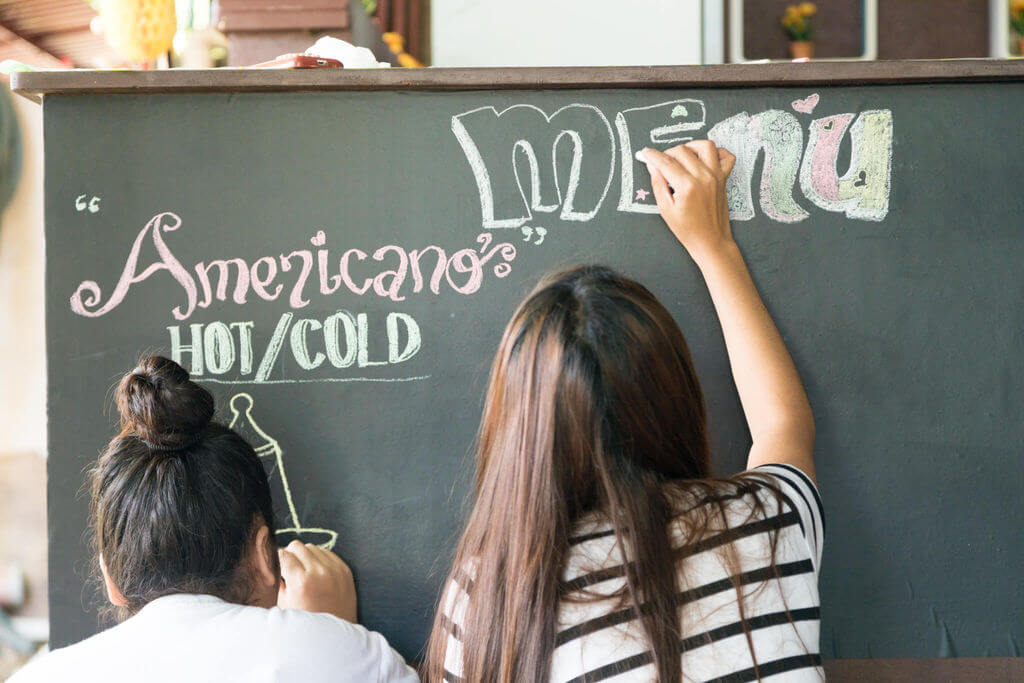 mEnu
“Americano's”
HOT/COLD